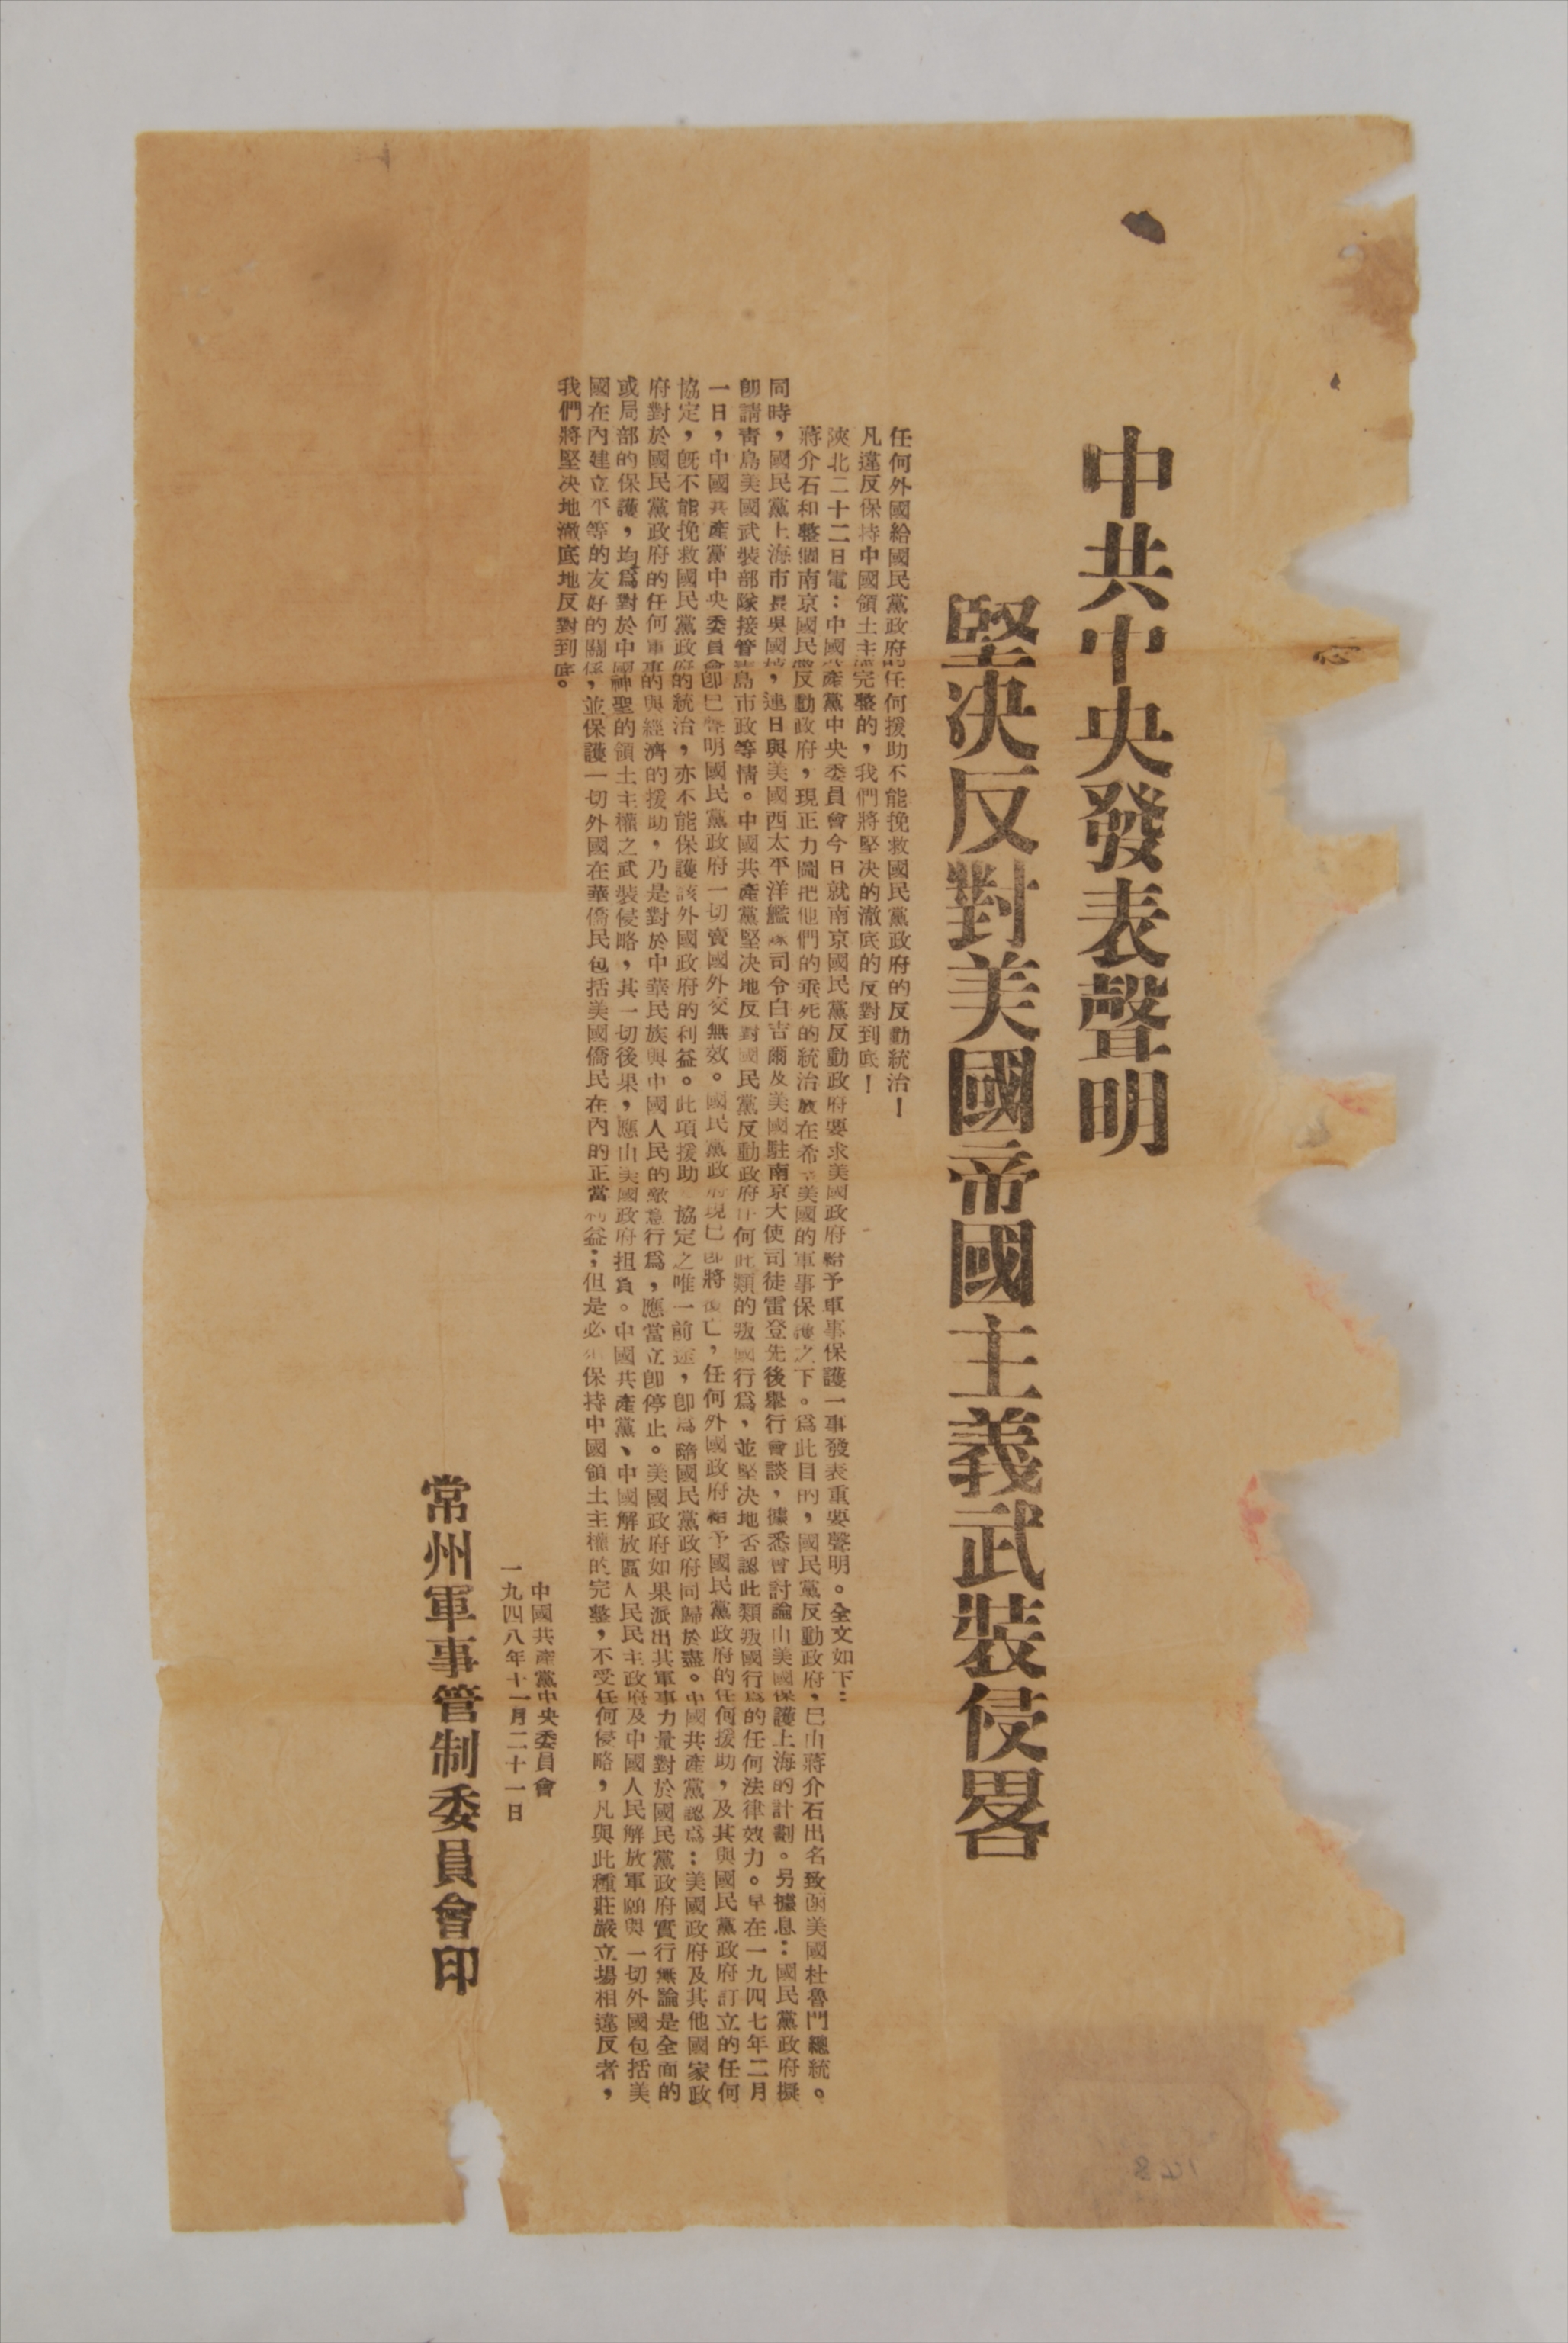 中共中央發表聲明
堅決反對美國帝國主義武裝侵畧
任何外國給國民黨政府的任何援助不能挽救國民黨政府的反動統治！
凡違反保持中國領土主權完整的，我們將堅決的澈底的反對到底！
陝北二十二日電：中國共產黨中央委員會今日就南京國民黨反動政府要求美國政府給予軍事保護一事發表重要聲明。全文如下：
蔣介石和整個南京國民黨反動政府，現正力圖把他們的垂死的統治放在希望美國的軍事保護之下。爲此目的，國民黨反動政府，已由蔣介石出名致函美國杜魯門總統。
同時，國民黨上海市長吳國楨，連日與美國西太平洋艦隊司令白吉爾及美國駐南京大使司徒雷登先後舉行會談，據悉曾討論由美國保護上海的計劃。另據息：國民黨政府擬
卽請靑島美國武裝部隊接管靑島市政等情。中國共產黨堅決地反對國民黨反動政府任何此類的叛國行爲，並堅決地否認此類叛國行爲的任何法律效力。早在一九四七年二月
一日，中國共產黨中央委員會卽已聲明國民黨政府一切賣國外交無效。國民黨政府現已卽將覆亡，任何外國政府給予國民黨政府的任何援助，及其與國民黨政府訂立的任何
協定，旣不能挽救國民黨政府的統治，亦不能保護該外國政府的利益。此項援助 協定之唯一前途，卽爲隨國民黨政府同歸於盡。中國共產黨認爲：美國政府及其他國家政
府對於國民黨政府的任何軍事的與經濟的援助，乃是對於中華民族與中國人民的敵意行爲，應當立卽停止。美國政府如果派出其軍事力量對於國民黨政府實行無論是全面的
或局部的保護，均爲對於中國神聖的領土主權之武裝侵略，其一切後果，應由美國政府担負。中國共產黨、中國解放區人民民主政府及中國人民解放軍願與一切外國包括美
國在內建立平等的友好的關係，並保護一切外國在華僑民包括美國僑民在內的正當利益；但是必須保持中國領土主權的完整，不受任何侵略，凡與此種莊嚴立場相違反者，
我們將堅決地澈底地反對到底。
中國共產黨中央委員會
一九四八年十一月二十一日
常州軍事管制委員會印